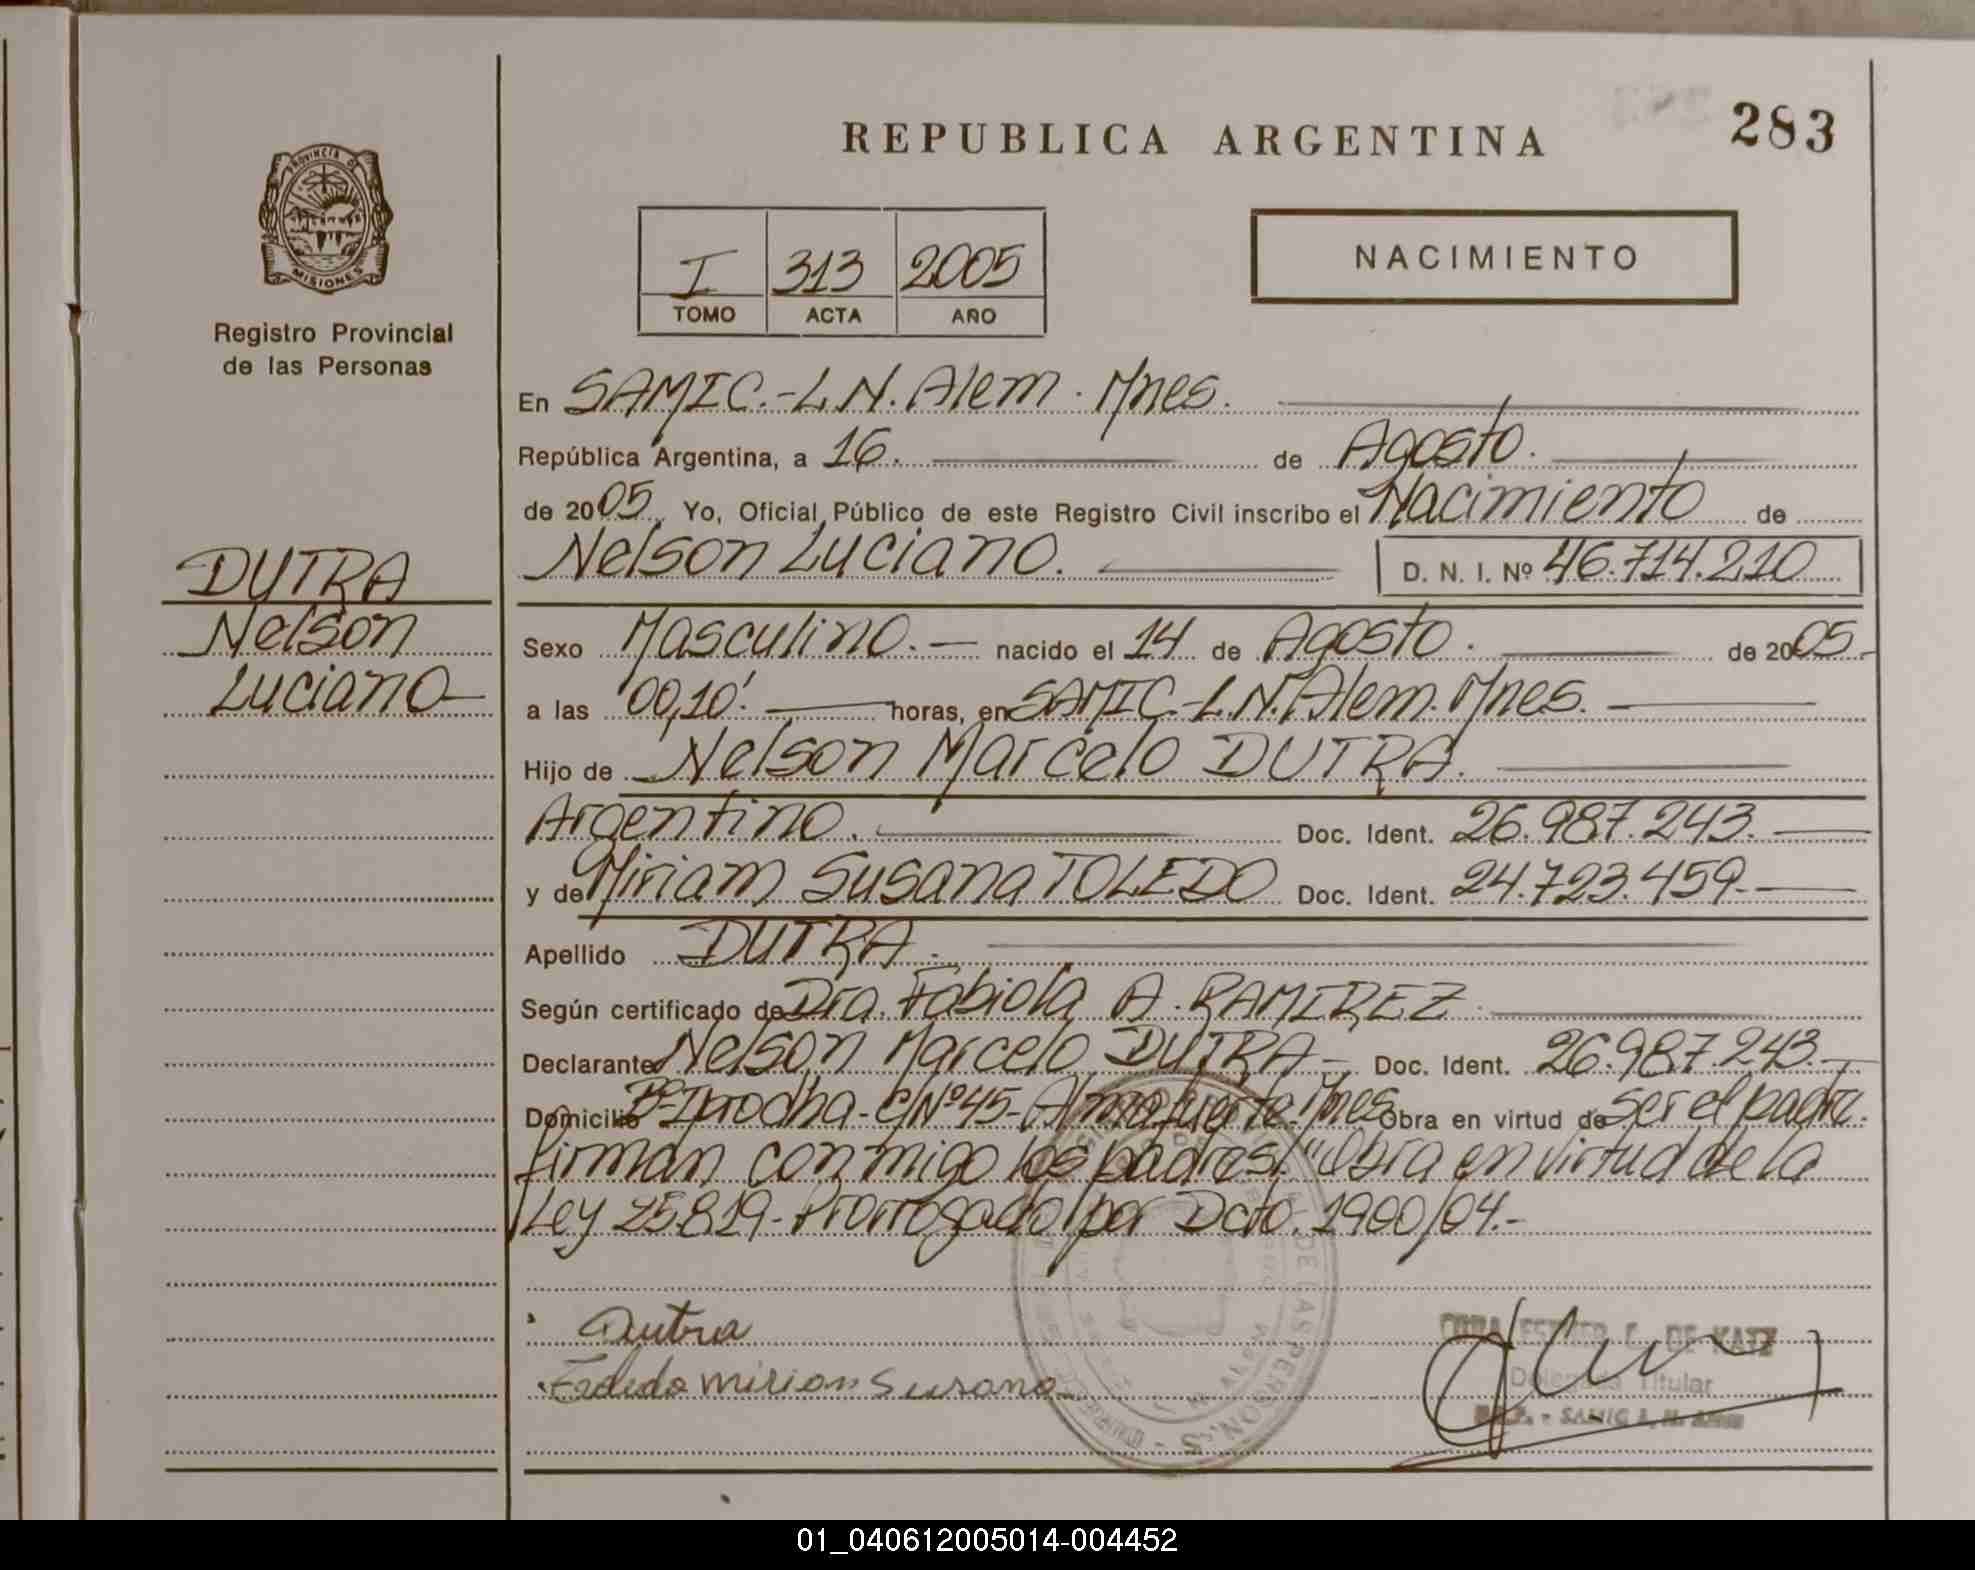 REPUBLICA ARGENTINA
283
PROVINCIA DE
MISIONES
Registro Provincial
de las Personas
I 313 2005
TOMO ACTA AÑO
NACIMIENTO
En SAMIC.-L.N. Alem. Mnes.
República Argentina, a 16. de Agosto.
de 2005. Yo, Oficial Público de este Registro Civil inscribo el Nacimiento de
Nelson Luciano. D. N. I. Nº 46.714.210
DUTRA
Nelson
Luciano
Sexo Masculino.- nacido el 14 de Agosto. de 2005.
a las 00,10'. horas, en SAMIC.-L.N. Alem. Mnes.
Hijo de Nelson Marcelo DUTRA.
Argentino. Doc. Ident. 26.987.243.
y de Miriam Susana TOLEDO Doc. Ident. 24.723.459.-
Apellido DUTRA.
Según certificado de Dra. Fabiola A. RAMIREZ.
Declarante Nelson Marcelo DUTRA- Doc. Ident. 26.987.243.-
Domicilio Bº-Iprodha-C/Nº45-Almafuerte-Mnes Obra en virtud de Ser el padre.
firman conmigo los padres. "Obra en virtud de la
Ley 25.819.-Prorrogado por Dcto. 1900/04.-
Dutra
Toledo Mirian Susana
DE KATZ
Delegada Titular
R.P.P. - SAMIC L. N. Alem
01_040612005014-004452